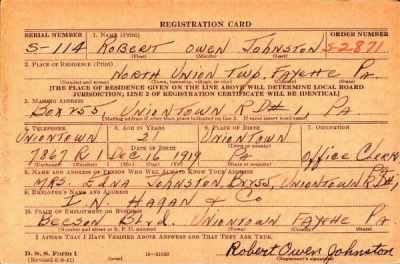 REGISTRATION CARD
SERIAL NUMBER 1. NAME (Print) ORDER NUMBER
S-114 ROBERT OWEN JOHNSTON S-2871
2. PLACE OF RESIDENCE (Print)
NORTH UNION TWP. FAYETTE PA.
(Number and street) (Town, township, village, or city) (County) (State)
[THE PLACE OF RESIDENCE GIVEN ON THE LINE ABOVE WILL DETERMINE LOCAL BOARD
JURISDICTION; LINE 2 OF REGISTRATION CERTIFICATE WILL BE IDENTICAL]
3. MAILING ADDRESS
BOX 455, UNIONTOWN RD#1, PA
[Mailing address if other than place indicated on line 2. If same insert word same]
4. TELEPHONE 5. AGE IN YEARS 6. PLACE OF BIRTH 7. OCCUPATION
UNIONTOWN 21 UNIONTOWN
DATE OF BIRTH
7867 R 1 DEC. 16 1919 PA Office Clerk
(Mo.) (Day) (Yr.) (State or country)
8. NAME AND ADDRESS OF PERSON WHO WILL ALWAYS KNOW YOUR ADDRESS
MRS. EDNA JOHNSTON, BOX 55, UNIONTOWN RD#1,
9. EMPLOYER'S NAME AND ADDRESS
I. N. HAGAN & CO
10. PLACE OF EMPLOYMENT OR BUSINESS
BEESON BLVD. UNIONTOWN FAYETTE PA
(Number and street or R. F. D. number) (Town) (County) (State)
I AFFIRM THAT I HAVE VERIFIED ABOVE ANSWERS AND THAT THEY ARE TRUE.
D. S. S. Form 1 Robert Owen Johnston
(Revised 6-9-41) (Registrant's signature)